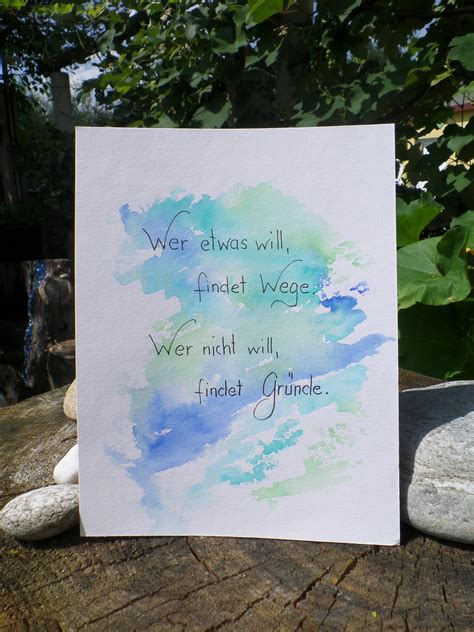 Wer etwas will,
findet Wege.
Wer nicht will,
findet Gründe.